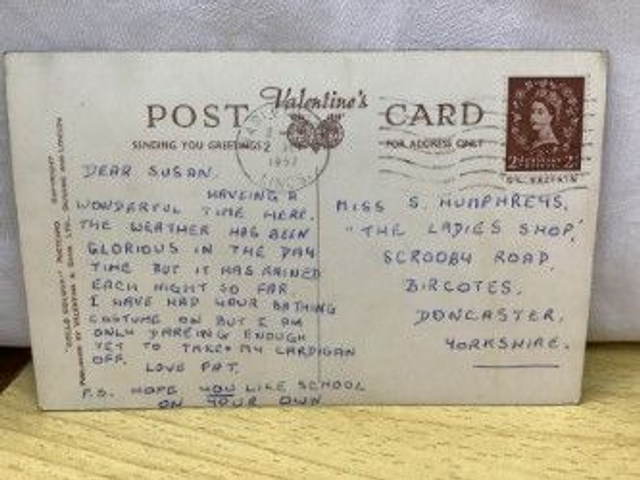 POST Valentine's CARD
SENDING YOU GREETINGS FOR ADDRESS ONLY
1957
DEAR SUSAN.
HAVEING A
WONDERFUL TIME HERE.
THE WEATHER HAS BEEN
GLORIOUS IN THE DAY
TIME BUT IT HAS RAINED
EACH NIGHT SO FAR
I HAVE HAD YOUR BATHING
COSTUME ON BUT I AM
ONLY DAREING ENOUGH
YET TO TAKE MY CARDIGAN
OFF. LOVE PAT.
P.S. HOPE YOU LIKE SCHOOL
ON YOUR OWN
MISS S. HUMPHREYS,
"THE LADIES SHOP,"
SCROOBY ROAD,
BIRCOTES,
DONCASTER,
YORKSHIRE.